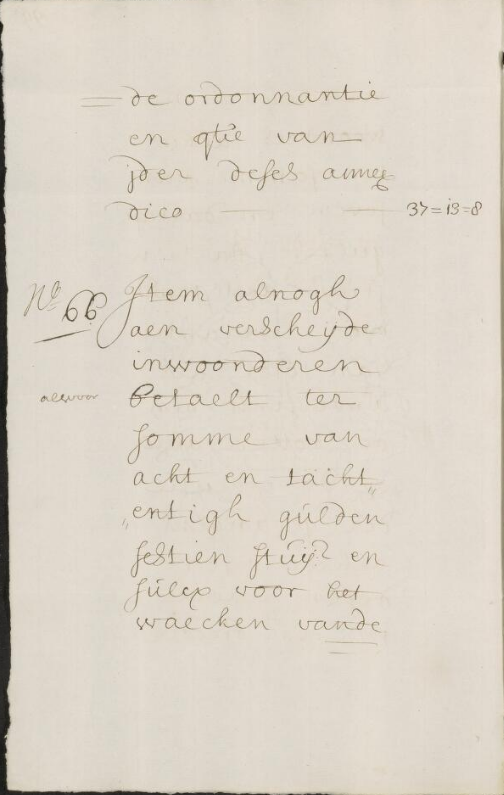 de ordonnantie
en qtie van
jder deses annex
dico 37=13=8
No 66 Item alnogh
aen verscheijde
inwoonderen
alsvoor betaelt ter
somme van
acht en tacht„
„entigh gulden
sestien stuijr en
sulcx voor het
waecken vande